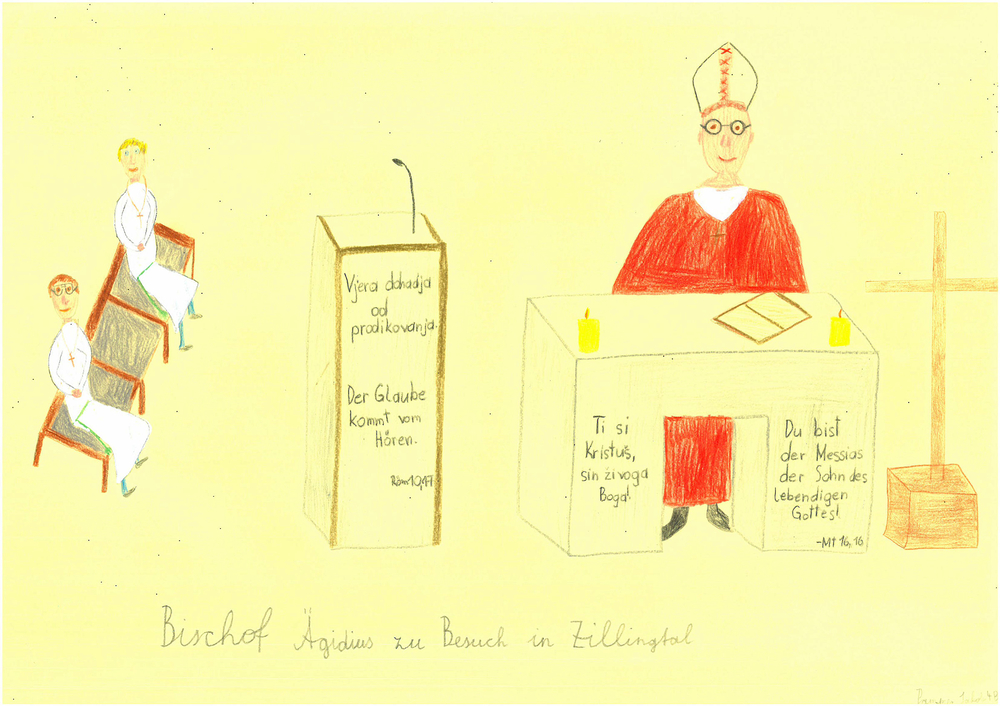 Vjera dohadja
od
prodikovanja.
Der Glaube
kommt vom
Hören.
Röm 10,17
Ti si
Kristuš,
sin živoga
Boga!
Du bist
der Messias
der Sohn des
lebendigen
Gottes!
-Mt 16,16
Bischof Ägidius zu Besuch in Zillingtal